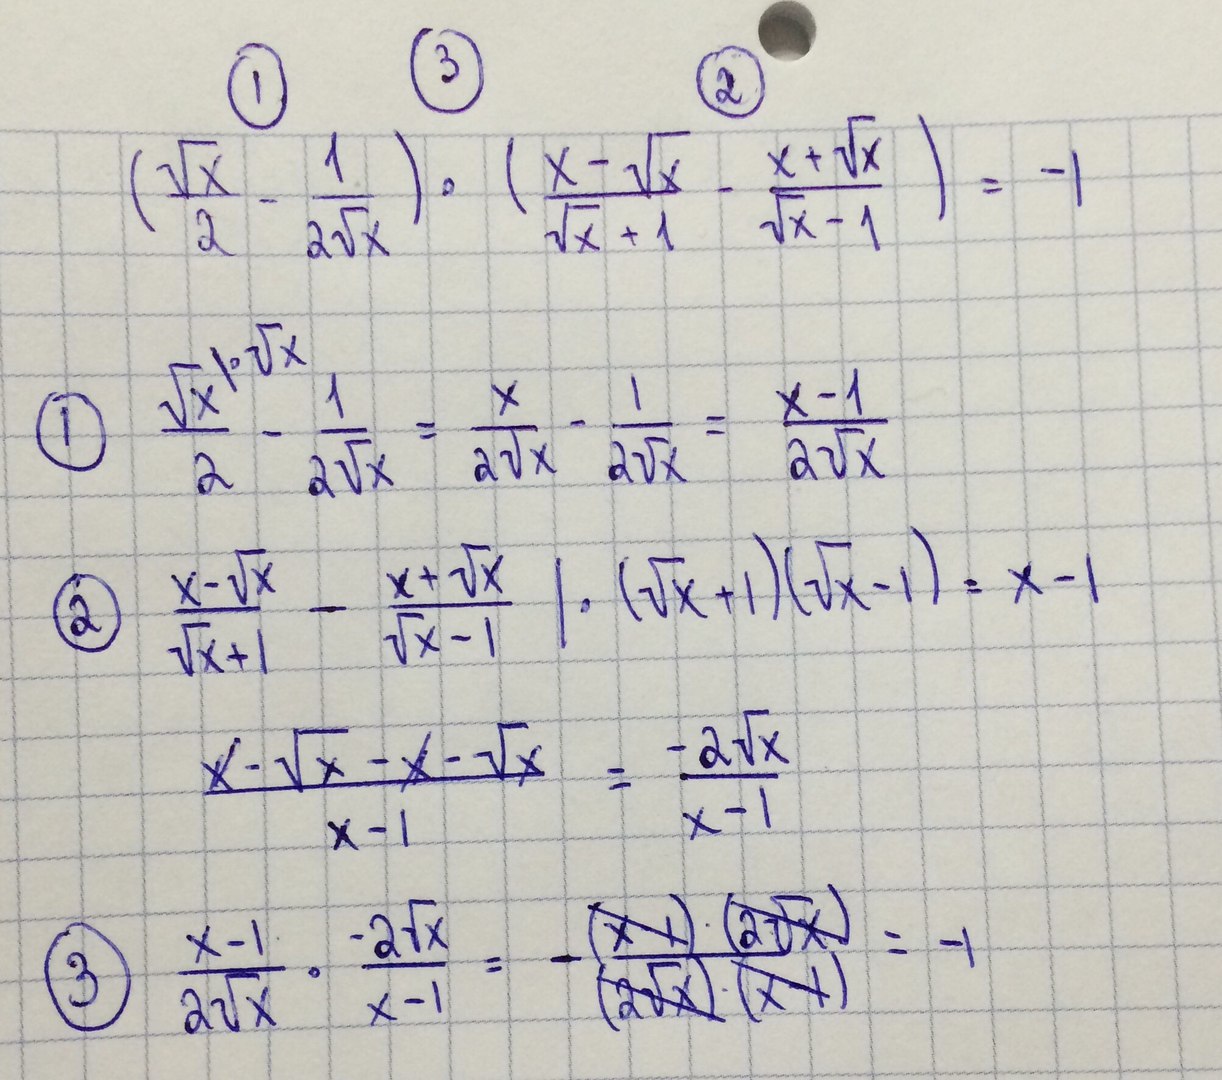 ① ③ ②
(√x/2 - 1/2√x) · (x - √x/√x + 1 - x + √x/√x - 1) = -1
① √x/2 |·√x - 1/2√x = x/2√x - 1/2√x = x - 1/2√x
② x - √x/√x + 1 - x + √x/√x - 1 | · (√x + 1)(√x - 1) = x - 1
x - √x - x - √x/x - 1 = -2√x/x - 1
③ x - 1/2√x · -2√x/x - 1 = - (x - 1) · (2√x)/(2√x) · (x - 1) = -1